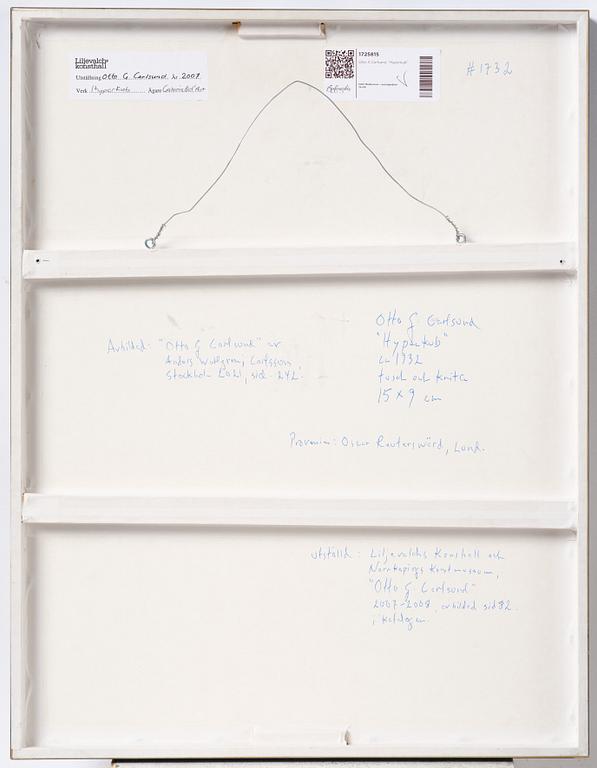 Liljevalchs
konsthall
Utställning Otto G Carlsund, 2007
Verk Hyperkub Ägare
1725815
Otto G Carlsund, "Hyperkub"
#1732
Otto G Carlsund
"Hyperkub"
ca 1932
tusch och krita
15 x 9 cm
Avbildad: "Otto G Carlsund" av
Anders Wallgren, Carlsson
Stockholm 2021, sid. 242.
Provenien: Oscar Reutersvärd, Lund.
utställd: Liljevalchs Konsthall och
Norrköpings Konstmuseum,
"Otto G Carlsund"
2007-2008, avbildad sid 82
i katalogen.